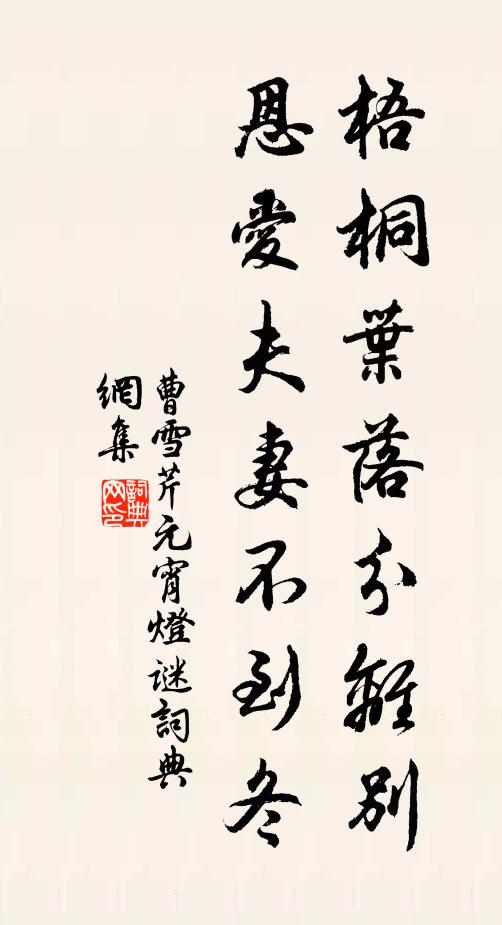 梧桐葉落分離別
恩愛夫妻不到冬
曹雪芹元宵燈谜詞典
網集
詞典
网印